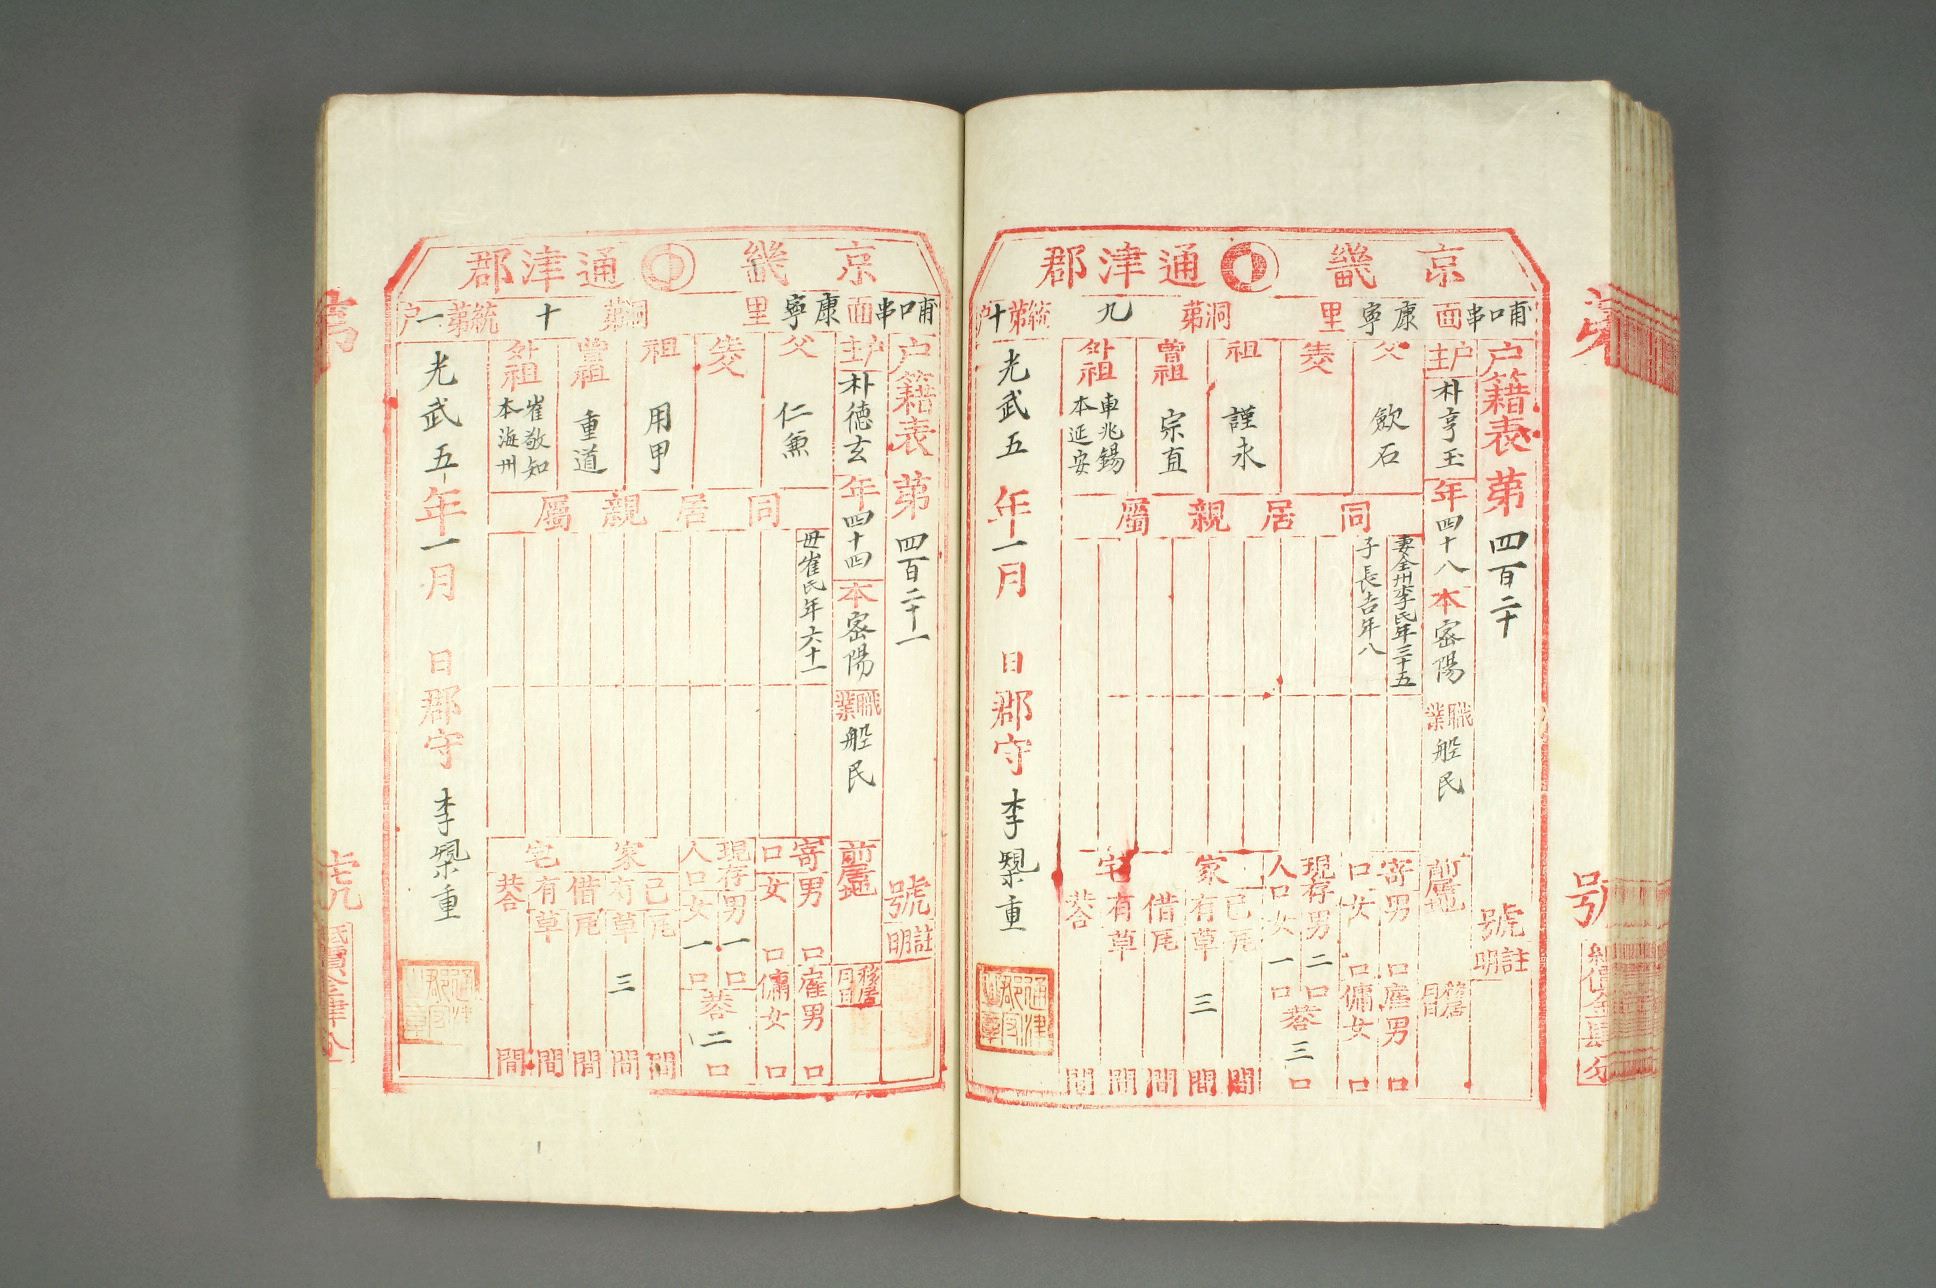 京畿 通津郡
哺口串面 康寧里 洞第 九 統第十户
户籍表 第 四百二十 號
註明
户主 朴亨玉 年四十八 本密陽 職業 船民 前居地
父 歆石
祖 謹永
曾祖 宗直
外祖 車兆錫 本延安
同居親屬
妻全州李氏年三十五
子長吉年八
寄口 男 口 女 口
雇男 口 傭女 口
現存人口 男 二 口 女 一 口
共 三 口
家宅
己有 瓦 間 草 三 間
借有 瓦 間 草 間
共合 間
光武五年一月 日 郡守 李㮚重
京畿 通津郡
哺口串面 康寧里 洞第 十 統第一户
户籍表 第 四百二十一 號
註明
户主 朴德玄 年四十四 本密陽 職業 船民 前居地
移居月日
父 仁兼
祖 用甲
曾祖 重道
外祖 崔敬知 本海州
同居親屬
母崔氏年六十一
寄口 男 口 女 口
雇男 口 傭女 口
現存人口 男 一 口 女 一 口
共 二 口
家宅
己有 瓦 間 草 三 間
借有 瓦 間 草 間
共合 間
光武五年一月 日 郡守 李㮚重